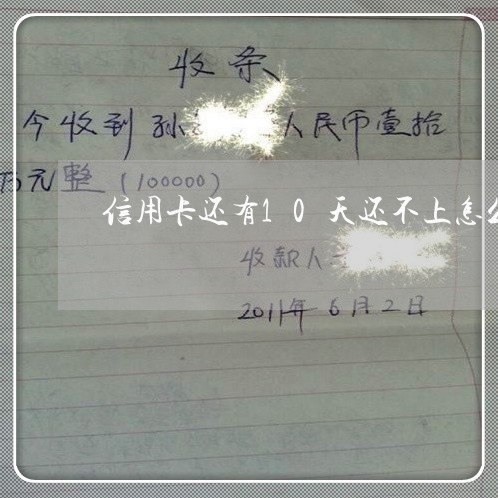 收条
今收到孙 人民币壹拾
万元整(100000)
信用卡还有10天还不上怎么
收款人
2011年6月2日